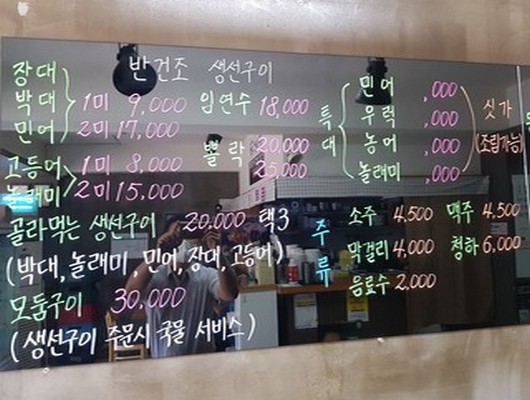 반건조 생선구이
장대
박대 1미 9,000
민어 2미 17,000
고등어 1미 8,000
놀래미 2미 15,000
임연수 18,000
뽈락 20,000
25,000
골라먹는 생선구이 20.000 택3
(박대, 놀래미, 민어, 장대, 고등어)
모둠구이 30,000
(생선구이 주문시 국물 서비스)
특대
민어 ,000
우럭 ,000
농어 ,000
놀래미 ,000
싯가
(조림가능)
주류
소주 4,500 맥주 4,500
막걸리 4,000 청하 6,000
음료수 2,000